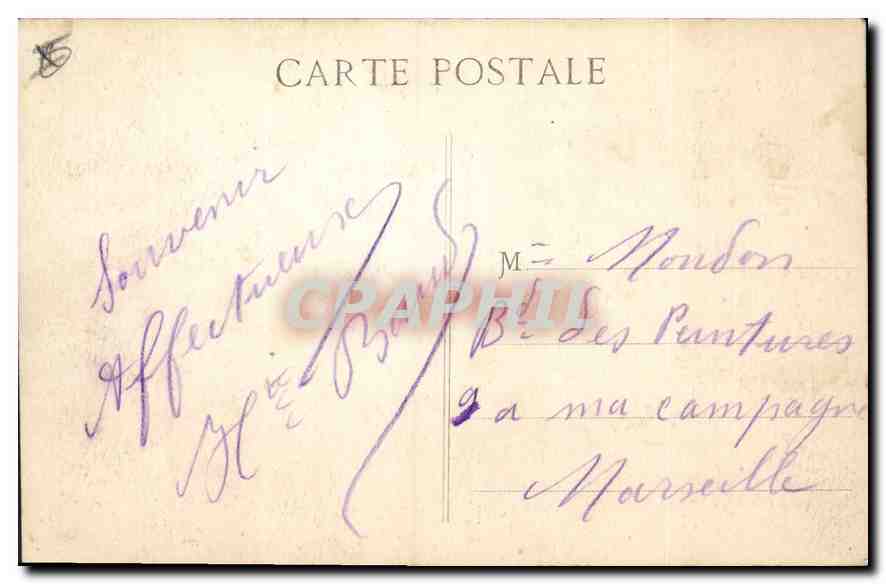 CARTE POSTALE
Souvenir
Affectueux
CPARHIL
Mme Moudon
Bd des Peintures
9 a ma campagne
Marseille